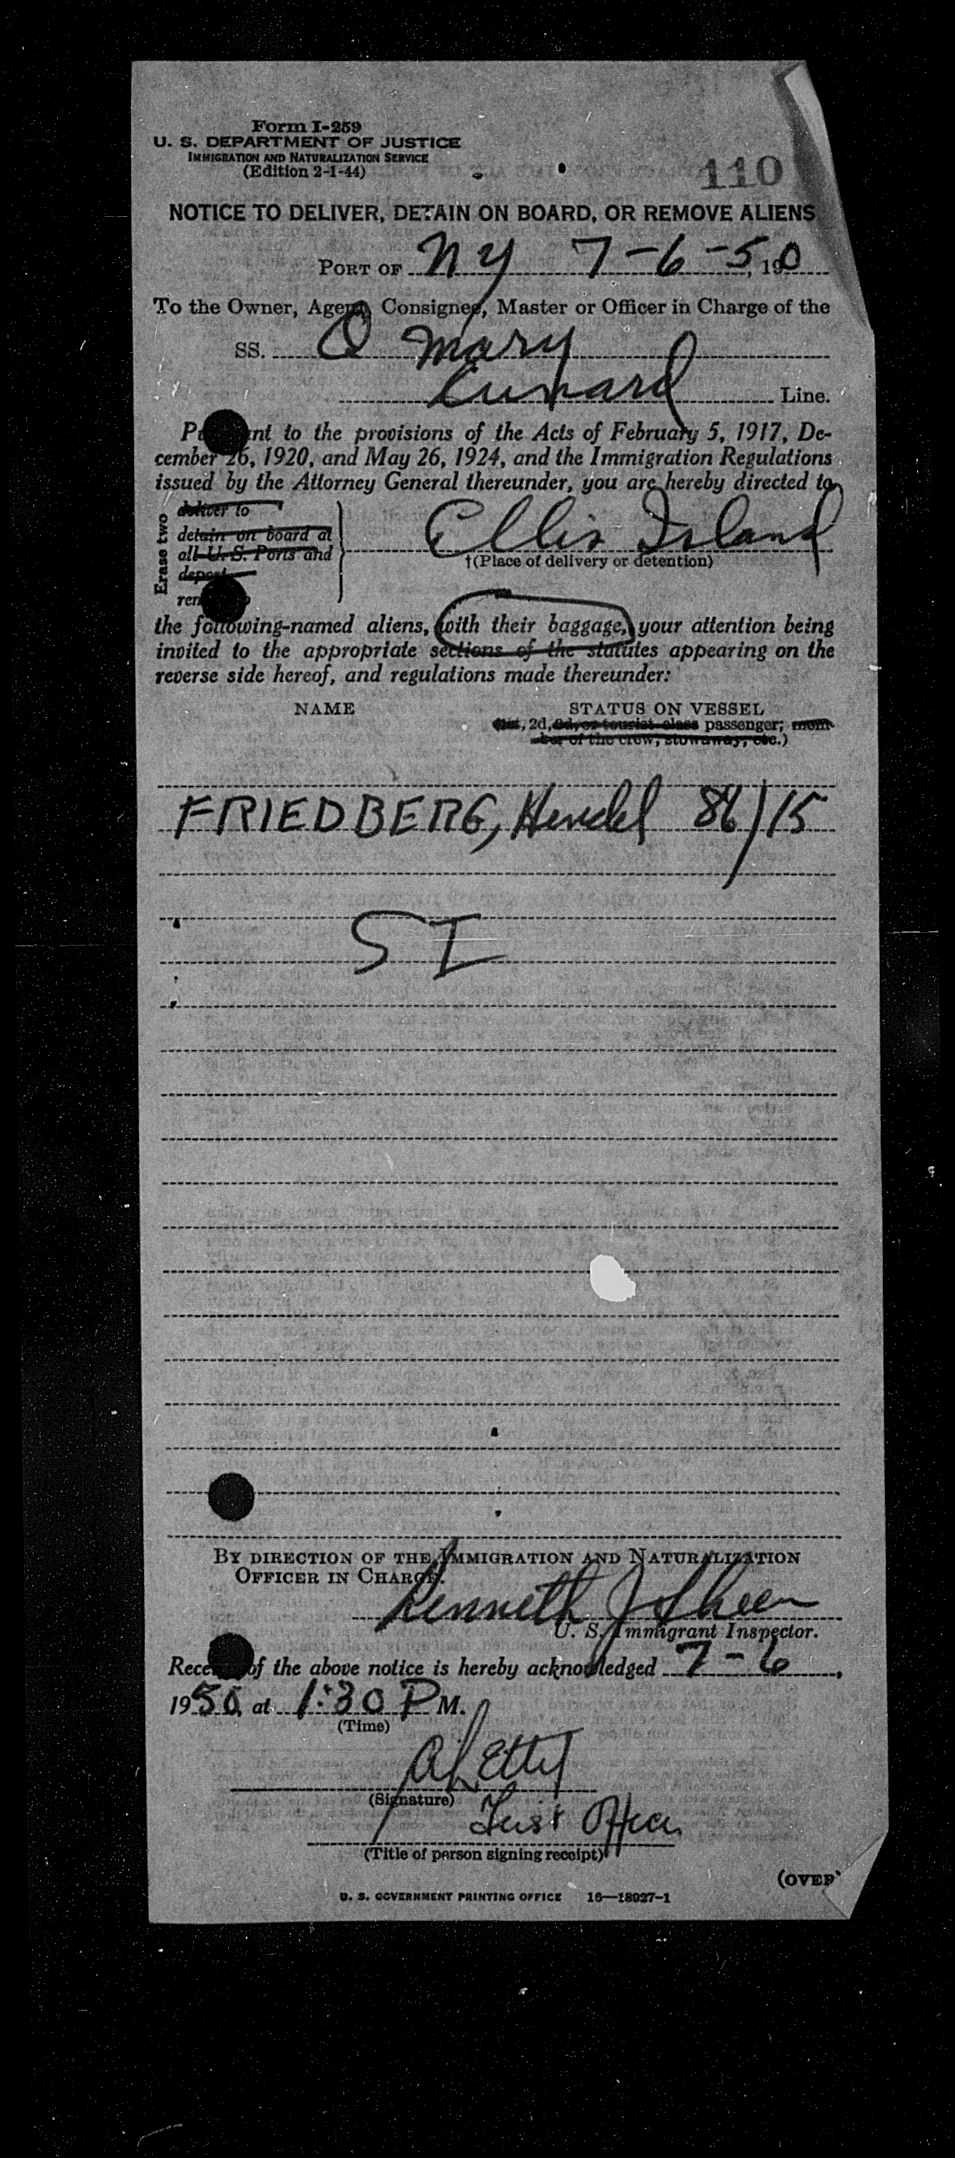 Form I-259
U. S. DEPARTMENT OF JUSTICE
IMMIGRATION AND NATURALIZATION SERVICE
(Edition 2-1-44)
110
NOTICE TO DELIVER, DETAIN ON BOARD, OR REMOVE ALIENS
PORT OF NY 7-6-50, 19
To the Owner, Agent, Consignee, Master or Officer in Charge of the
SS. Q Mary
Cunard Line.
Pursuant to the provisions of the Acts of February 5, 1917, De-
cember 26, 1920, and May 26, 1924, and the Immigration Regulations
issued by the Attorney General thereunder, you are hereby directed to
Erase two
deliver to
detain on board at
all U. S. Ports and
deport
remove to
Ellis Island
†(Place of delivery or detention)
the following-named aliens, with their baggage, your attention being
invited to the appropriate sections of the statutes appearing on the
reverse side hereof, and regulations made thereunder:
NAME STATUS ON VESSEL
(1st, 2d, 3d, or tourist class passenger; mem-
ber of the crew, stowaway, etc.)
FRIEDBERG, Hendel 86/15
SI
BY DIRECTION OF THE IMMIGRATION AND NATURALIZATION
OFFICER IN CHARGE.
Kenneth J
U. S. Immigrant Inspector.
Receipt of the above notice is hereby acknowledged 7-6,
1950, at 1:30 P M.
(Time)
(Signature)
First Officer
(Title of person signing receipt)
(OVER)
U. S. GOVERNMENT PRINTING OFFICE 16—18027-1